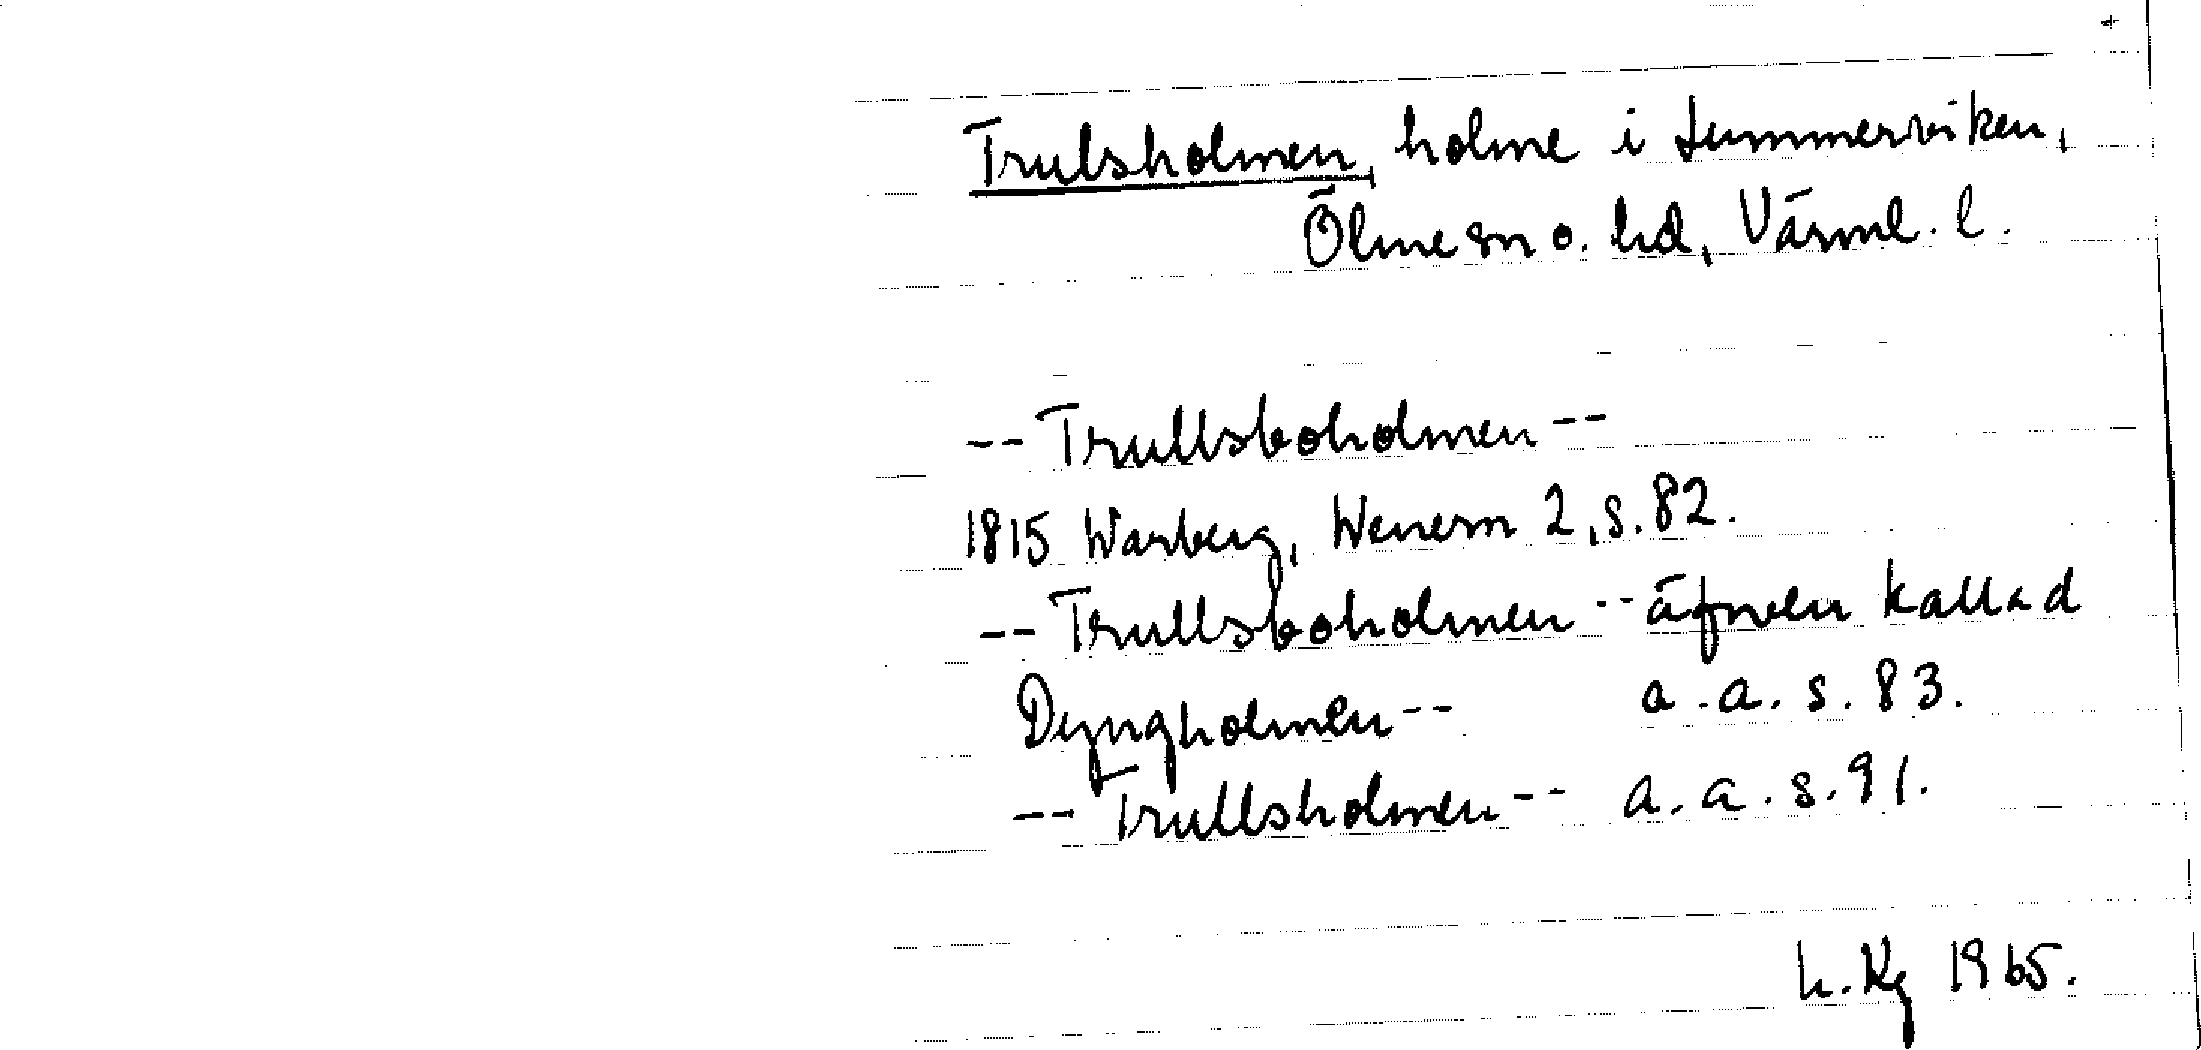 +
Trulsholmen, holme i Summerviken,
Ölme sn o. hd, Värml. l.
-- Trullsboholmen --
1815 Warberg, Wenern 2, s. 82.
-- Trullsboholmen -- äfven kallad
Dyngholmen -- a. a. s. 83.
-- Trullsholmen -- a. a. s. 91.
h. Kg 1965.